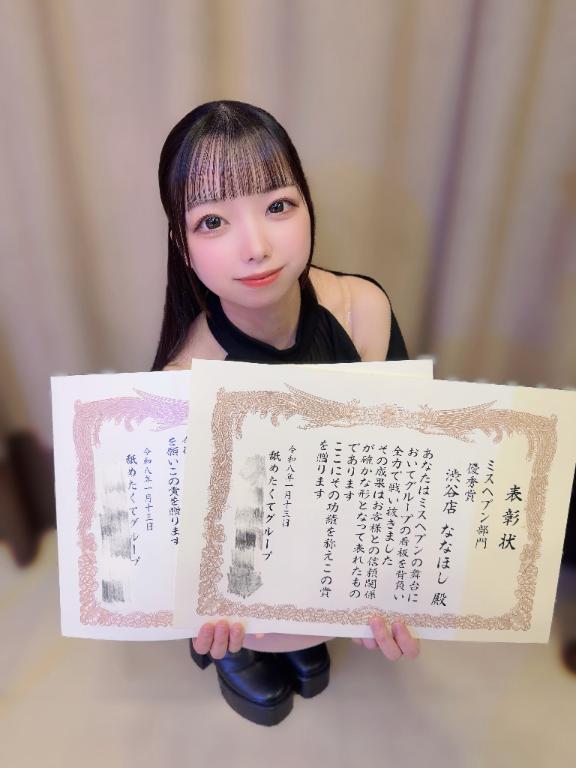 表彰状
ミスヘブン部門
優秀賞
渋谷店 ななほし 殿
あなたはミスヘブンの舞台に
おいてグループの看板を背負い
全力で戦い抜きました
その成果はお客様との信頼関係
が確かな形となって表れたもの
であります
ここにその功績を称えこの賞
を贈ります
令和八年一月十三日
舐めたくてグループ
を願いこの賞を贈ります
令和八年一月十三日
舐めたくてグループ